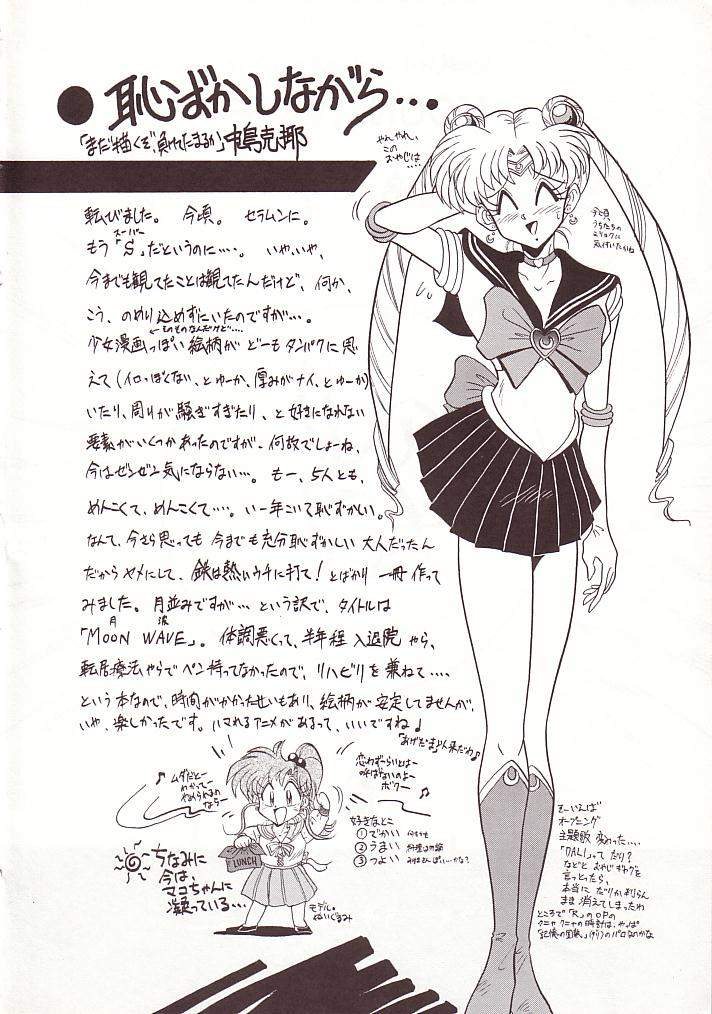 ●恥ずかしながら…
「まだ描くぞ、負けてたまるか」中島克耶
やれやれ、
この
おやじは
‥‥
今頃、
うちたちの
ミリョクに
気付いたかね
転びました。今頃。セラムンに。
スーパー
もう「S」だというのに‥‥。いやいや、
今までも観てたことは観てたんだけど、何か、
こう、のめり込めずにいたのですが…。
そのものなんだけど‥‥
少女漫画っぽい絵柄がどーもタンパクに思
えて(イロっぽくない、とゆーか、厚みがナイ、とゆーか)
いたり、周りが騒ぎすぎたり、と好きになれない
要素がいくつかあったのですが、何故でしょーね、
今はゼンゼン気にならない…。もー、5人とも、
めんこくて、めんこくて‥‥。いー年こいて恥ずかしい。
なんて、今さら思っても今までも充分恥ずかしい大人だったん
だからヤメにして、鉄は熱いウチに打て!とばかり一冊作って
みました。月並みですが…という訳で、タイトルは
月 波
「MOON WAVE」。体調悪くって、半年程入退院やら、
転居療法やらでペン持ってなかったので、リハビリを兼ねて‥‥
という本なので、時間がかかったせいもあり、絵柄が安定してませんが、
いや、楽しかったです。ハマれるアニメがあるって、いいですね♪
「あげだま」ん来だわ♪
♪ムダだとー
わかってー
やめられるの
ならー
恋わずーらいとはー
呼ばないのよー
ボクー♪
好きなとこ
①でかい 何もかも
②うまい 料理は勿論
③つよい
LUNCH
ちなみに
今は、
マコちゃんに
凝っている…
モデル。
ぬいぐるみ
そーいえば
オープニング
主題歌 変わった…
「DALI」って だり?
などと おやじギャグを
言っとったら、
本当に だりか判らん
まま 消えてしまったわ
ところで「R」のOPの
クニャクニャの時計は、やっぱ
「記憶の固執」(ダリ)のパロなのかな